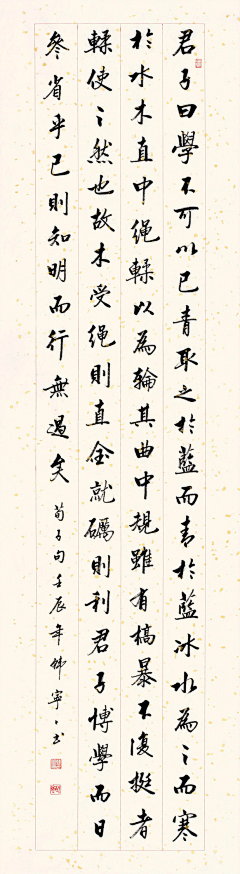 君子曰學不可以已青取之於藍而青於藍冰水為〻而寒
於水木直中繩輮以為輪其曲中規雖有槁暴不復挺者
輮使〻然也故木受繩則直金就礪則利君子博學而日
參省乎己則知明而行無過矣
荀子句壬辰年寧〻书